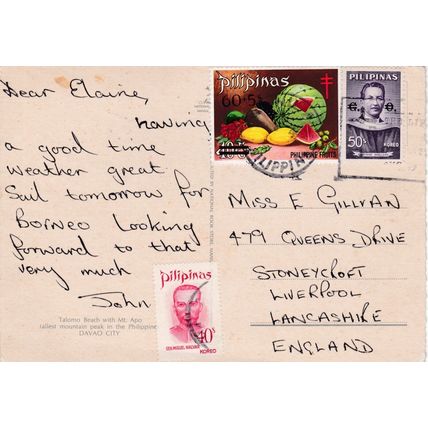 Dear Elaine,
having
a good time
weather great
Sail tomorrow for
Borneo Looking
forward to that
very much
John
Talomo Beach with Mt. Apo
tallest mountain peak in the Philippine
DAVAO CITY
pilipinas
60+5s
PHILIPPINE FRUITS
PILIPINAS
G. O.
50s
KOREO
MISS E GILLVAN
479 QUEENS DRIVE
STONEYCROFT
LIVERPOOL
LANCASHIRE
ENGLAND
pilipinas
40s
GEN. MIGUEL MALVAR
KOREO